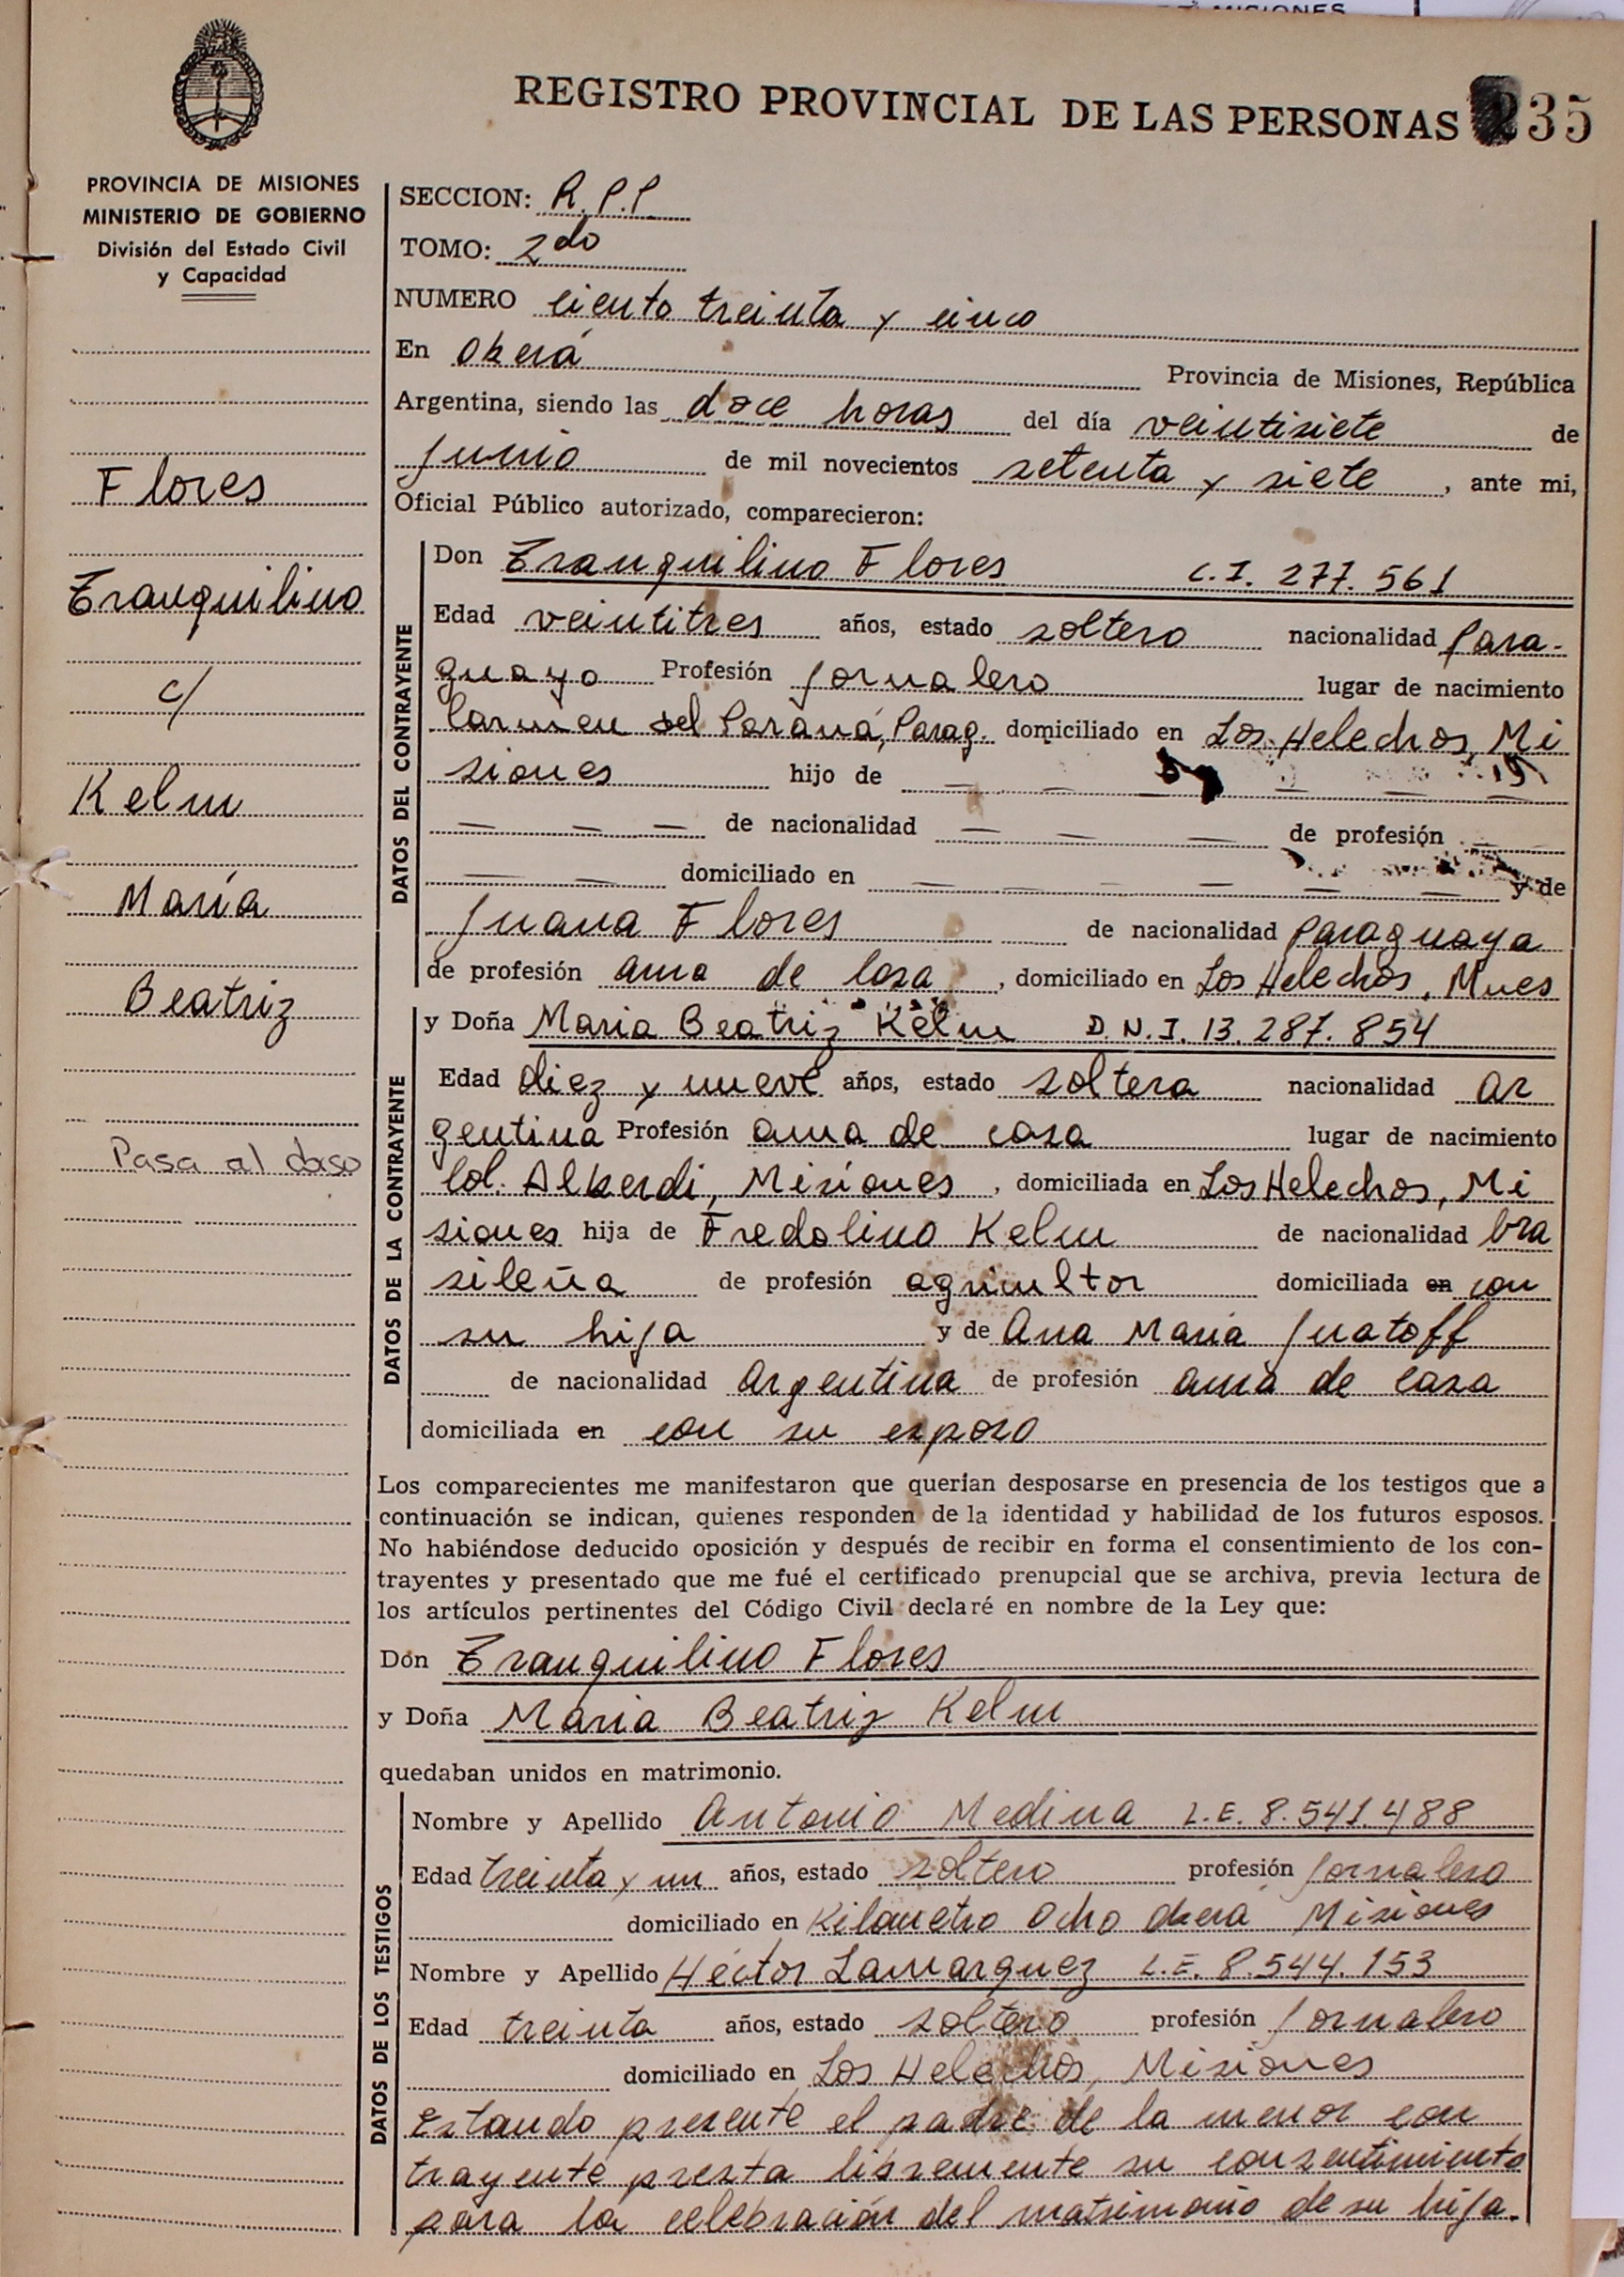 MISIONES
REGISTRO PROVINCIAL DE LAS PERSONAS 235
PROVINCIA DE MISIONES
MINISTERIO DE GOBIERNO
División del Estado Civil
y Capacidad
Flores
Tranquilino
c/
Kelm
María
Beatriz
Pasa al dorso
SECCION: R.P.P.
TOMO: 2do
NUMERO ciento treinta y cinco
En Oberá Provincia de Misiones, República
Argentina, siendo las doce horas del día veintisiete de
Junio de mil novecientos setenta y siete, ante mi,
Oficial Público autorizado, comparecieron:
DATOS DEL CONTRAYENTE
Don Tranquilino Flores C.I. 277.561
Edad veintitres años, estado soltero nacionalidad Para-
guayo Profesión Jornalero lugar de nacimiento
Carmen del Paraná, Parag. domiciliado en Los Helechos, Mi
siones hijo de — — — — — —
— — — de nacionalidad — — — de profesión —
— — domiciliado en — — — — — y de
Juana Flores de nacionalidad Paraguaya
de profesión ama de casa, domiciliado en Los Helechos, Mnes
DATOS DE LA CONTRAYENTE
y Doña María Beatriz Kelm D.N.I. 13.287.854
Edad diez y nueve años, estado soltera nacionalidad ar
gentina Profesión ama de casa lugar de nacimiento
Col. Alberdi, Misiones, domiciliada en Los Helechos, Mi
siones hija de Fredolino Kelm de nacionalidad bra
sileña de profesión agricultor domiciliada en con
su hija y de Ana María Juatoff
de nacionalidad Argentina de profesión ama de casa
domiciliada en con su esposo
Los comparecientes me manifestaron que querían desposarse en presencia de los testigos que a
continuación se indican, quienes responden de la identidad y habilidad de los futuros esposos.
No habiéndose deducido oposición y después de recibir en forma el consentimiento de los con-
trayentes y presentado que me fué el certificado prenupcial que se archiva, previa lectura de
los artículos pertinentes del Código Civil declaré en nombre de la Ley que:
Don Tranquilino Flores
y Doña María Beatriz Kelm
quedaban unidos en matrimonio.
DATOS DE LOS TESTIGOS
Nombre y Apellido Antonio Medina L.E. 8.541.488
Edad treinta y un años, estado soltero profesión Jornalero
domiciliado en Kilometro Ocho Oberá Misiones
Nombre y Apellido Héctor Lamarquez L.E. 8.544.153
Edad treinta años, estado soltero profesión Jornalero
domiciliado en Los Helechos, Misiones
Estando presente el padre de la menor con
trayente presta libremente su consentimiento
para la celebración del matrimonio de su hija.